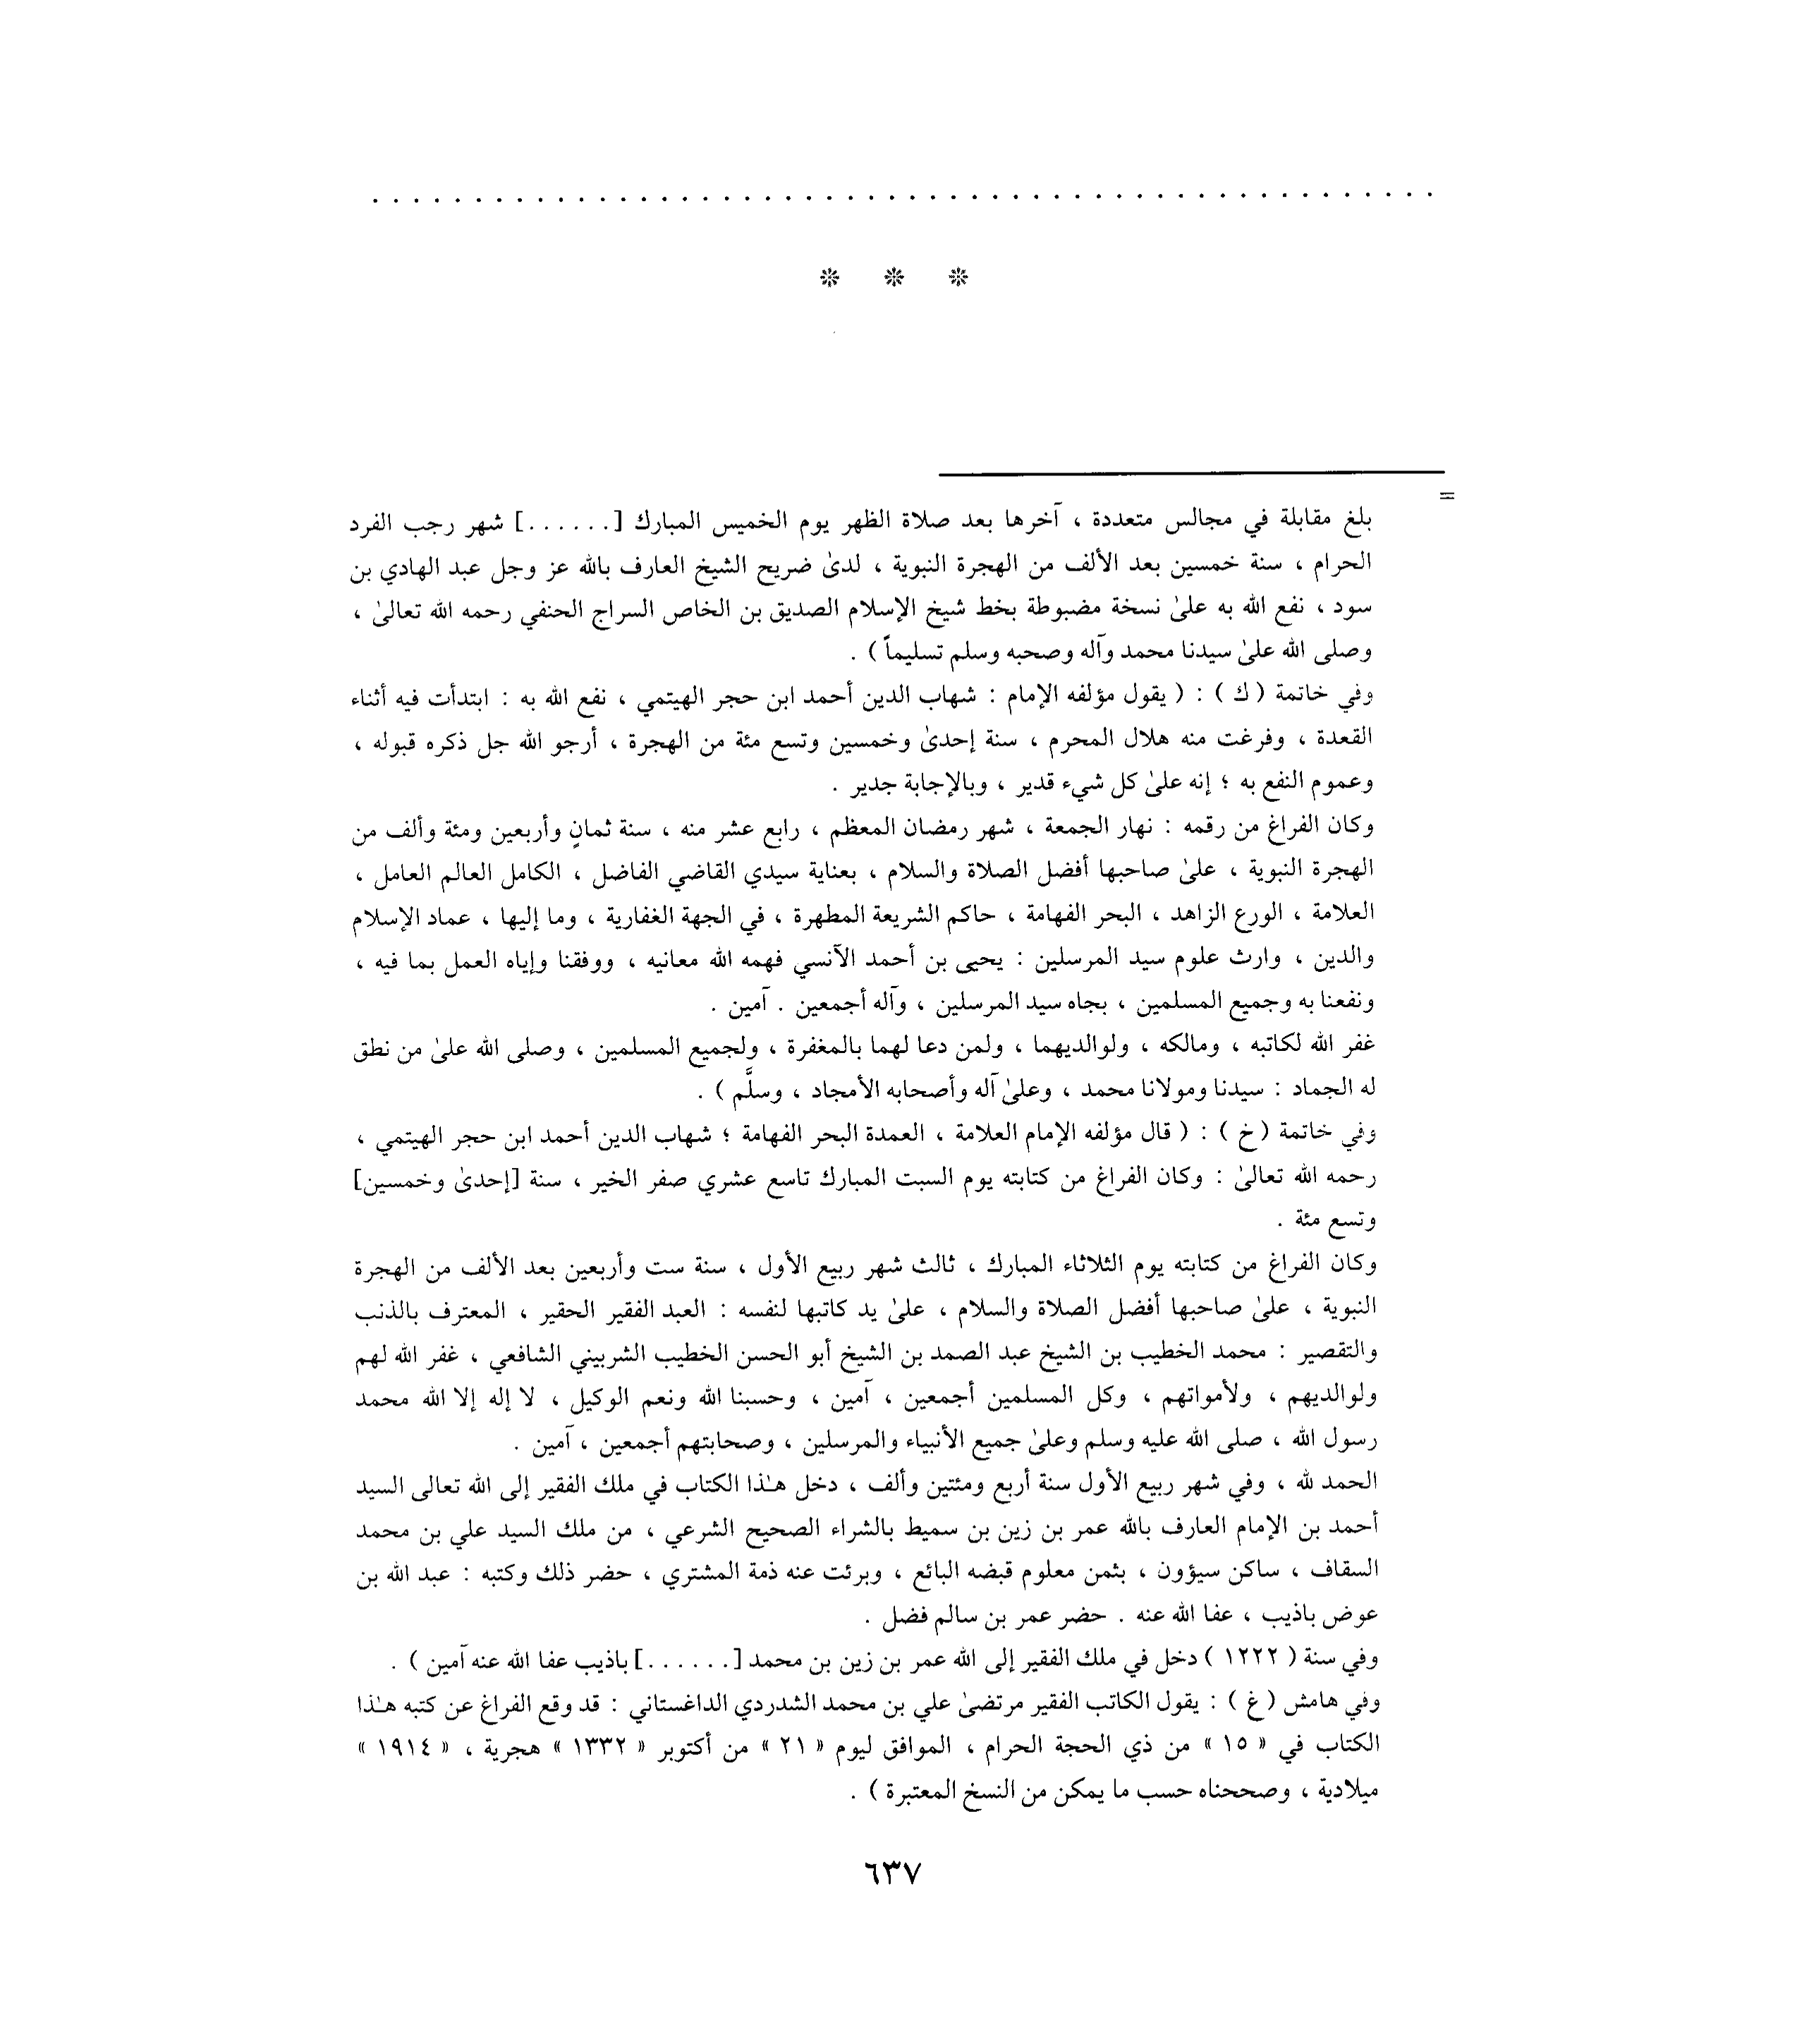 . . . . . . . . . . . . . . . . . . . . . . . . . . . . . . . . . . . . . . . . . . . . . . . . . . . .
❊ ❊ ❊
=
بلغ مقابلة في مجالس متعددة ، آخرها بعد صلاة الظهر يوم الخميس المبارك [ . . . . . . ] شهر رجب الفرد
الحرام ، سنة خمسين بعد الألف من الهجرة النبوية ، لدىٰ ضريح الشيخ العارف بالله عز وجل عبد الهادي بن
سود ، نفع الله به علىٰ نسخة مضبوطة بخط شيخ الإسلام الصديق بن الخاص السراج الحنفي رحمه الله تعالىٰ ،
وصلى الله علىٰ سيدنا محمد وآله وصحبه وسلم تسليماً ) .
وفي خاتمة ( ك ) : ( يقول مؤلفه الإمام : شهاب الدين أحمد ابن حجر الهيتمي ، نفع الله به : ابتدأت فيه أثناء
القعدة ، وفرغت منه هلال المحرم ، سنة إحدىٰ وخمسين وتسع مئة من الهجرة ، أرجو الله جل ذكره قبوله ،
وعموم النفع به ؛ إنه علىٰ كل شيء قدير ، وبالإجابة جدير .
وكان الفراغ من رقمه : نهار الجمعة ، شهر رمضان المعظم ، رابع عشر منه ، سنة ثمانٍ وأربعين ومئة وألف من
الهجرة النبوية ، علىٰ صاحبها أفضل الصلاة والسلام ، بعناية سيدي القاضي الفاضل ، الكامل العالم العامل ،
العلامة ، الورع الزاهد ، البحر الفهامة ، حاكم الشريعة المطهرة ، في الجهة الغفارية ، وما إليها ، عماد الإسلام
والدين ، وارث علوم سيد المرسلين : يحيى بن أحمد الآنسي فهمه الله معانيه ، ووفقنا وإياه العمل بما فيه ،
ونفعنا به وجميع المسلمين ، بجاه سيد المرسلين ، وآله أجمعين . آمين .
غفر الله لكاتبه ، ومالكه ، ولوالديهما ، ولمن دعا لهما بالمغفرة ، ولجميع المسلمين ، وصلى الله علىٰ من نطق
له الجماد : سيدنا ومولانا محمد ، وعلىٰ آله وأصحابه الأمجاد ، وسلَّم ) .
وفي خاتمة ( خ ) : ( قال مؤلفه الإمام العلامة ، العمدة البحر الفهامة ؛ شهاب الدين أحمد ابن حجر الهيتمي ،
رحمه الله تعالىٰ : وكان الفراغ من كتابته يوم السبت المبارك تاسع عشري صفر الخير ، سنة [إحدىٰ وخمسين]
وتسع مئة .
وكان الفراغ من كتابته يوم الثلاثاء المبارك ، ثالث شهر ربيع الأول ، سنة ست وأربعين بعد الألف من الهجرة
النبوية ، علىٰ صاحبها أفضل الصلاة والسلام ، علىٰ يد كاتبها لنفسه : العبد الفقير الحقير ، المعترف بالذنب
والتقصير : محمد الخطيب بن الشيخ عبد الصمد بن الشيخ أبو الحسن الخطيب الشربيني الشافعي ، غفر الله لهم
ولوالديهم ، ولأمواتهم ، وكل المسلمين أجمعين ، آمين ، وحسبنا الله ونعم الوكيل ، لا إله إلا الله محمد
رسول الله ، صلى الله عليه وسلم وعلىٰ جميع الأنبياء والمرسلين ، وصحابتهم أجمعين ، آمين .
الحمد لله ، وفي شهر ربيع الأول سنة أربع ومئتين وألف ، دخل هـٰذا الكتاب في ملك الفقير إلى الله تعالى السيد
أحمد بن الإمام العارف بالله عمر بن زين بن سميط بالشراء الصحيح الشرعي ، من ملك السيد علي بن محمد
السقاف ، ساكن سيؤون ، بثمن معلوم قبضه البائع ، وبرئت عنه ذمة المشتري ، حضر ذلك وكتبه : عبد الله بن
عوض باذيب ، عفا الله عنه . حضر عمر بن سالم فضل .
وفي سنة ( ١٢٢٢ ) دخل في ملك الفقير إلى الله عمر بن زين بن محمد [ . . . . . . ] باذيب عفا الله عنه آمين ) .
وفي هامش ( غ ) : يقول الكاتب الفقير مرتضىٰ علي بن محمد الشدردي الداغستاني : قد وقع الفراغ عن كتبه هـٰذا
الكتاب في « ١٥ » من ذي الحجة الحرام ، الموافق ليوم « ٢١ » من أكتوبر « ١٣٣٢ » هجرية ، « ١٩١٤ »
ميلادية ، وصححناه حسب ما يمكن من النسخ المعتبرة ) .
٦٣٧